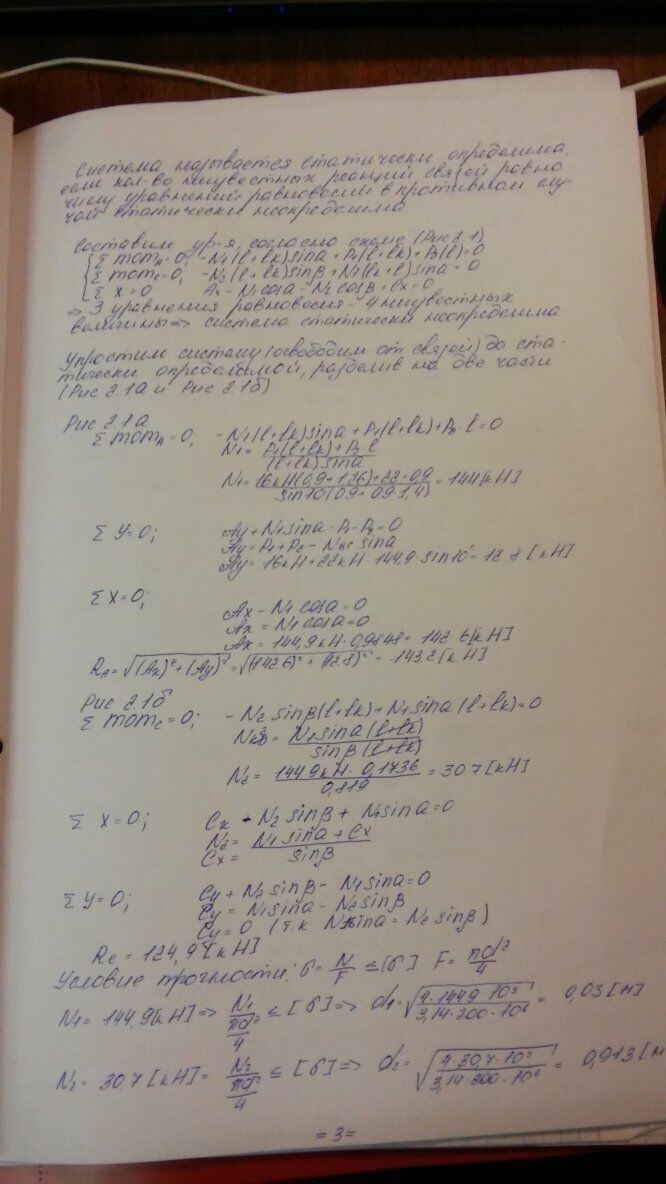 Система называется статически определима,
если кол-во неизвестных реакций связей равно
числу уравнений равновесия в противном слу-
чае статически неопределима
Составим ур-я, согласно схеме (Рис 2.1)
Σ mom A = 0; -N₁(l+lk)sina + P₁(l+lk) + P₂(l) = 0
Σ mom c = 0; -N₂(l+lk)sinβ + N₁(lk+l)sina = 0
Σ x = 0 Ax - N₁cosa - N₂cosβ + Cx = 0
⇒ 3 уравнения равновесия - 4 неизвестных
величины ⇒ система статически неопределима
Упростим систему (освободим от связей) до ста-
тически определимой, разделив на две части
(Рис 2.1а и Рис 2.1б)
Рис 2.1а
Σ mom A = 0; -N₁(l+lk)sina + P₁(l+lk) + P₂·l = 0
N₁ = P₁(l+lk)+P₂·l / (l+lk)sina
N₁ = 16кН(0,9+1,26)+22·0,9 / sin10(0,9+0,9·1,4) = 144[кН]
Σ Y = 0; Ay + N₁sina - P₁ - P₂ = 0
Ay = P₁ + P₂ - sina
Ay = 16кН + 22кН - 144,9·sin10° = 12.8 [кН]
Σ X = 0; Ax - N₁cosa = 0
Ax = N₁cosa = 0
Ax = 144,9кН·0,9848 = 142.6[кН]
RA = √(Ax)²+(Ay)² = √(142.6)²+(12.8)² = 143.2[кН]
Рис 2.1б
Σ mom c = 0; -N₂ sinβ(l+lk) + N₁sina(l+lk) = 0
= N₁sina(l+lk) / sinβ(l+lk)
N₂ = 144.9кН·0,1736 / 0,819 = 30.7[кН]
Σ x = 0; Cx + N₂sinβ + N₁sina = 0
N₂ = N₁sina + Cx / sinβ
Cx =
Σ y = 0; Cy + N₂sinβ - N₁sina = 0
Cy = N₁sina - N₂sinβ
Cy = 0 (т.к N₁sina = N₂sinβ)
Rc = 124,9 [кН]
Условие прочности: σ = N/F ≤ [σ] F = πd²/4
N₁ = 144.9[кН] ⇒ N₁ / πd²/4 ≤ [σ] ⇒ d₁ = √4·144.9·10³ / 3,14·200·10⁶ = 0,03[м]
N₂ = 30.7[кН] = N₂ / πd²/4 ≤ [σ] ⇒ d₂ = √4·30,7·10³ / 3,14·200·10⁶ = 0,013[м
= 3 =